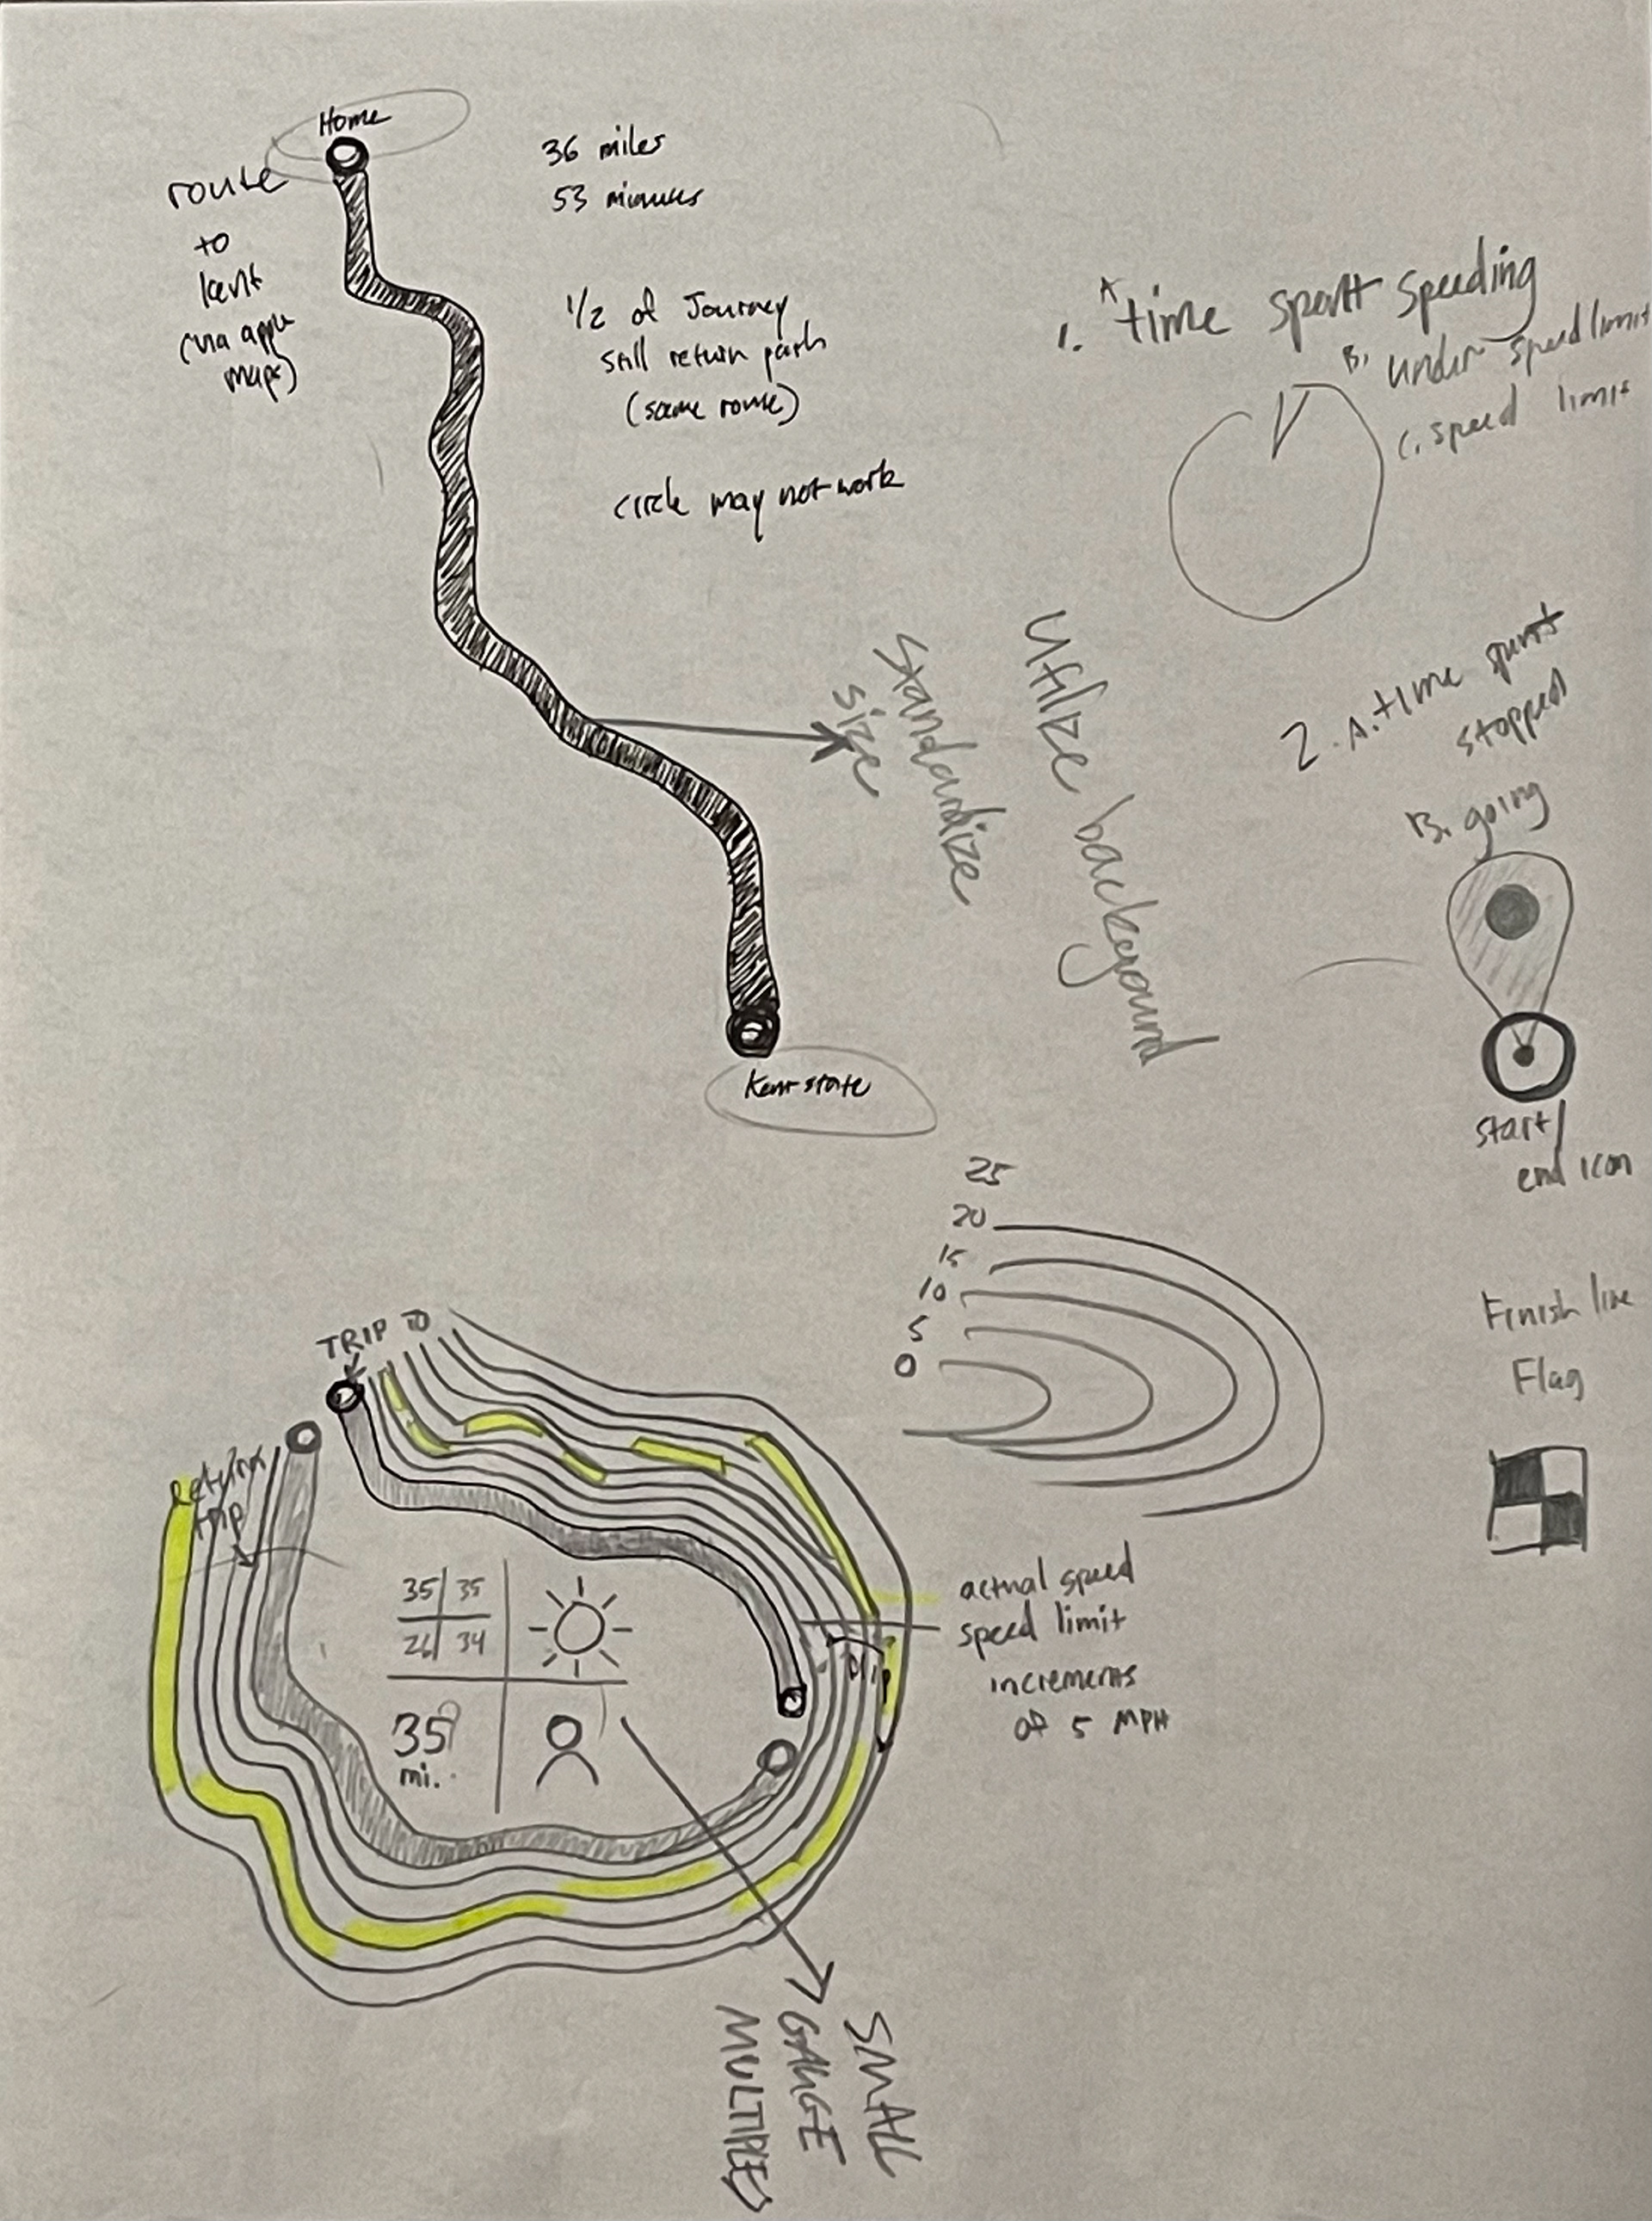 Home
route
to
kent
(via apple
maps)
36 miles
53 minutes
1/2 of Journey
still return path
(same route)
circle may not work
Kent state
1. A. time spent speeding
B. under speed limit
C. speed limit
Standardize
size
Utilize background
2. A. time spent
stopped
B. going
start/
end icon
Finish line
Flag
25
20
15
10
5
0
TRIP TO
return
trip
35 35
26 34
35
mi.
actual speed
speed limit
increments
of 5 MPH
SMALL
GAUGE
MULTIPLES